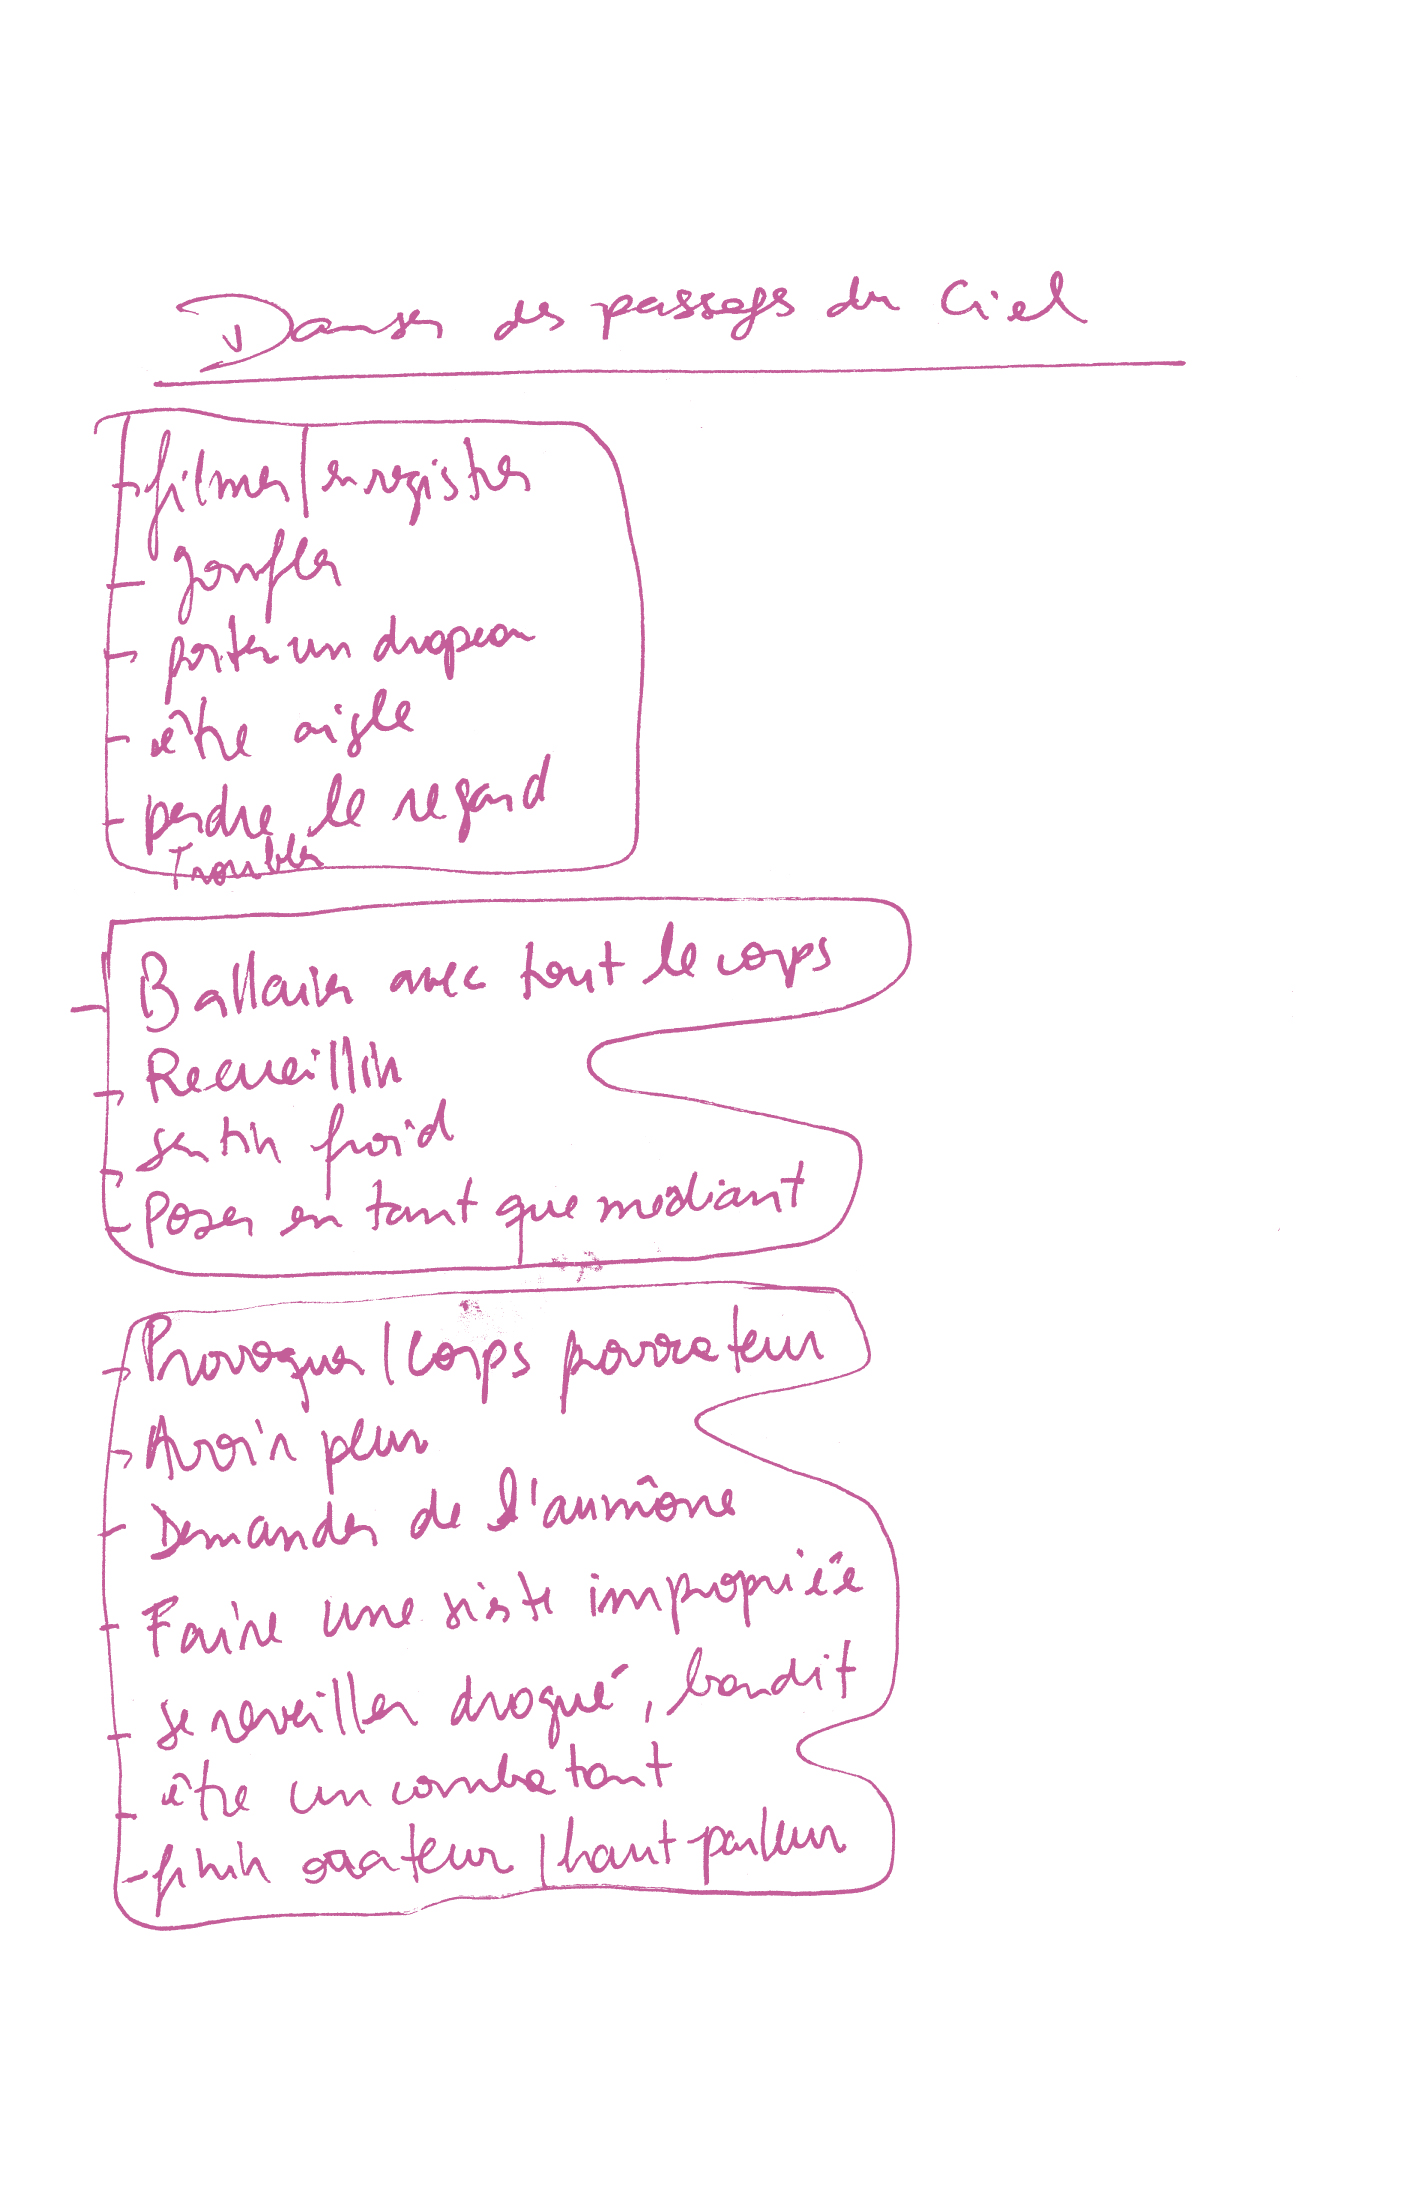 Danses des passages du Ciel
- filmer | enregistrer
- gonfler
- porter un drapeau
- être aigle
- perdre le regard
Troubler
- Ballaier avec tout le corps
- Recueillir
- sentir froid
- Poser en tant que mediant
- Provoquer | corps
- Avoir peur
- Demander de l'aumône
- Faire une sieste impropriée
- se reveiller drogué, bandit
- être un combatant
- finir orateur | haut parleur